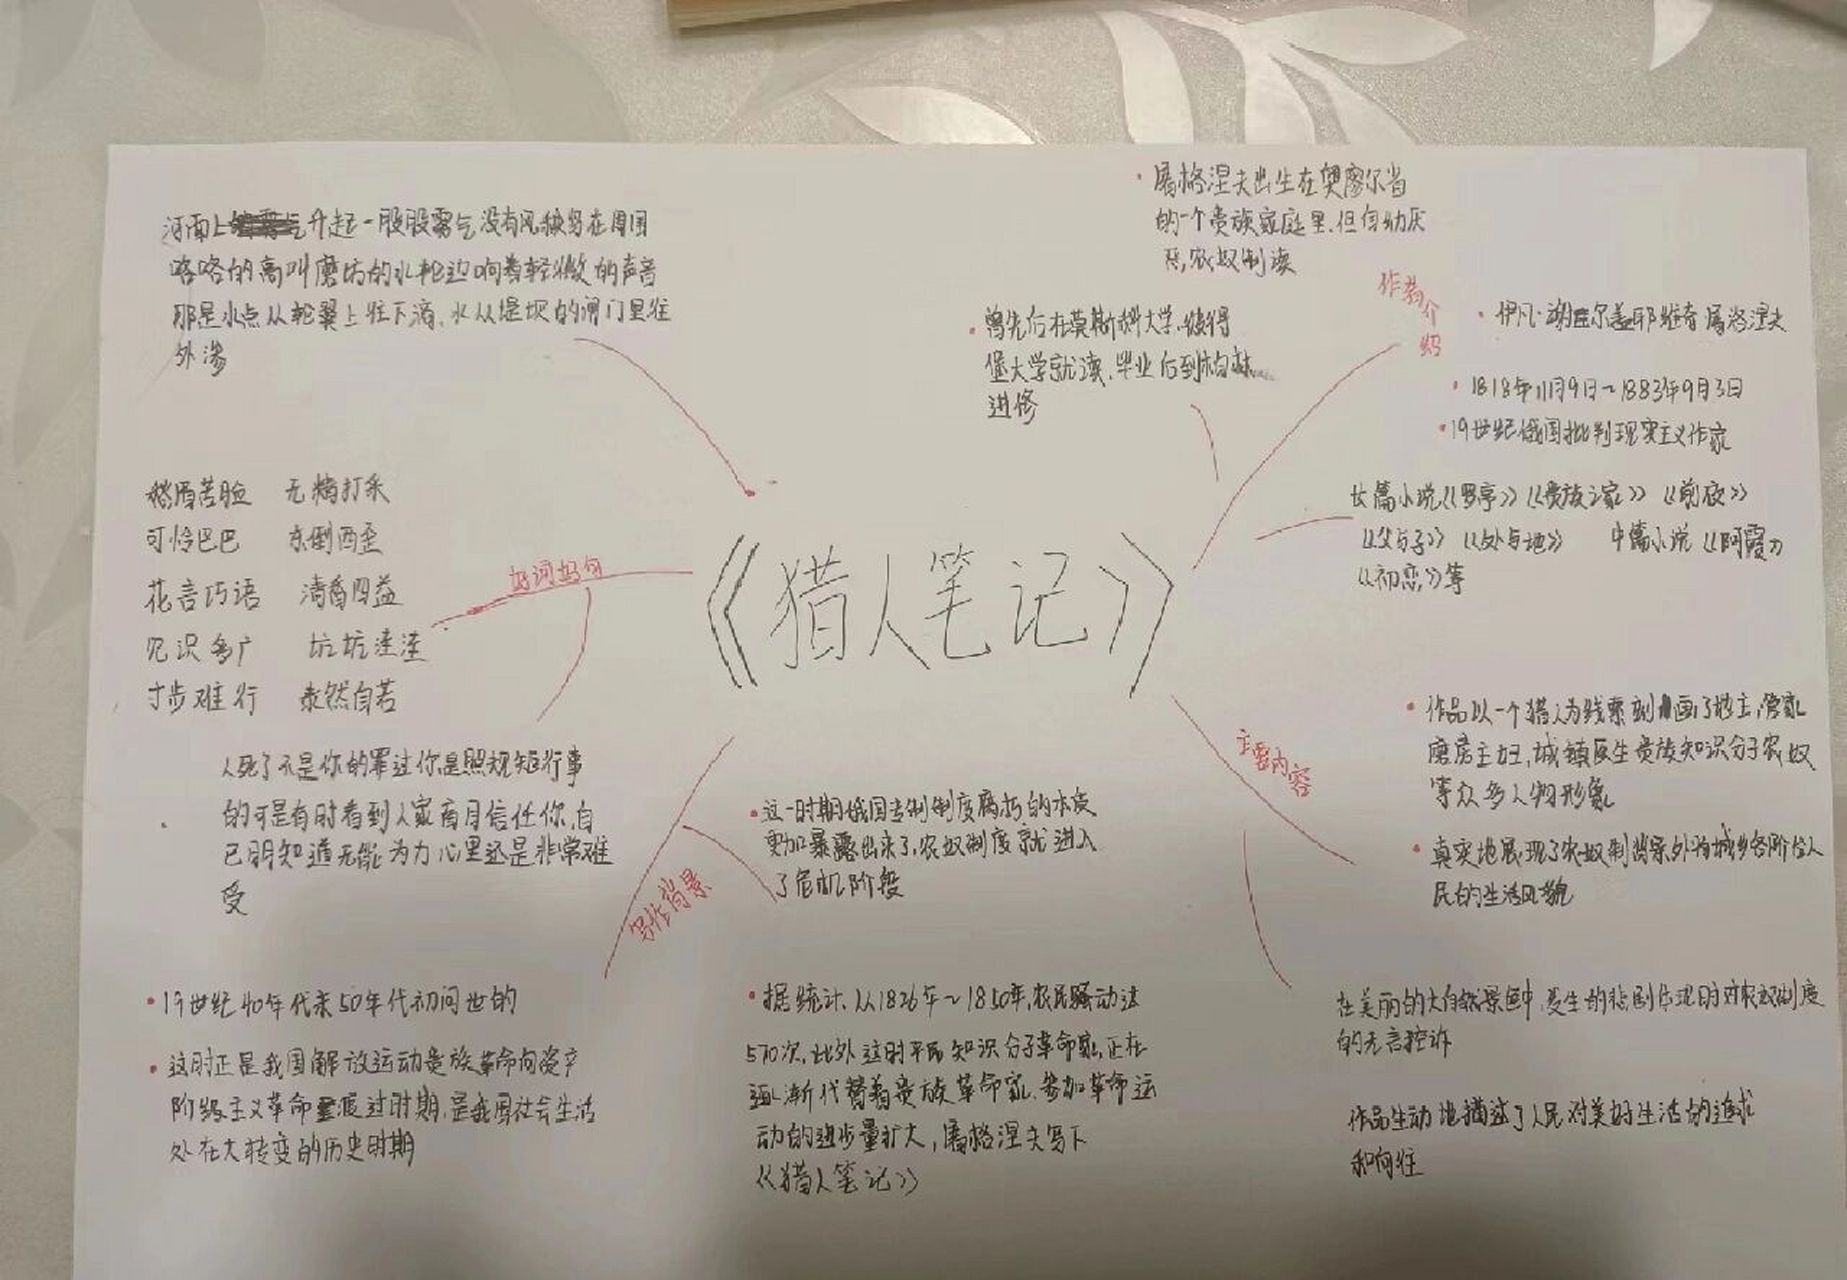 《猎人笔记》
作者介
绍
伊凡·谢尔盖耶维奇·屠洛涅夫
1818年11月9日～1883年9月3日
19世纪俄国批判现实主义作家
屠格涅夫出生在奥廖尔省
的一个贵族家庭里,但自幼厌
恶,农奴制度
曾先后在莫斯科大学、彼得
堡大学就读,毕业后到柏林
进修
长篇小说《罗亭》《贵族之家》《前夜》
《父与子》《处与地》 中篇小说《阿霞》
《初恋》等
主要内容
作品以一个猎人为线索刻画了地主,管家
磨房主妇,城镇医生贵族知识分子农奴
等众多人物形象
真实地展现了农奴制背景外省城乡各阶位人
民的生活风貌
在美丽的大自然景色中,发生的悲剧体现时对农奴制度
的无言控诉
作品生动地描述了人民对美好生活的追求
和向往
写作背景
这一时期俄国专制制度腐朽的本质
更加暴露出来了,农奴制度就进入
了危机阶段
19世纪40年代末50年代初问世的
这时正是我国解放运动贵族革命向资产
阶级主义革命渡过时期,是我国社会生活
处在大转变的历史时期
据统计,从1826年～1850年,农民骚动达
570次,此外这时平民知识分子革命家,正在
逐渐代替着贵族革命家,参加革命运
动的进步量扩大,屠格涅夫写下
《猎人笔记》
好词好句
河面上升起一股股雾气没有风秧鸡在周围
咯咯的高叫磨坊的水轮边响着轻微的声音
那是水点从轮翼上往下滴,水从堤坝的闸门里往
外渗
愁眉苦脸 无精打采
可怜巴巴 东倒西歪
花言巧语 清香四益
见识多广 坑坑洼洼
寸步难行 泰然自若
人死了不是你的罪过你是照规矩行事
的可是有时看到人家盲目信任你,自
己明知道无能为力心里还是非常难
受